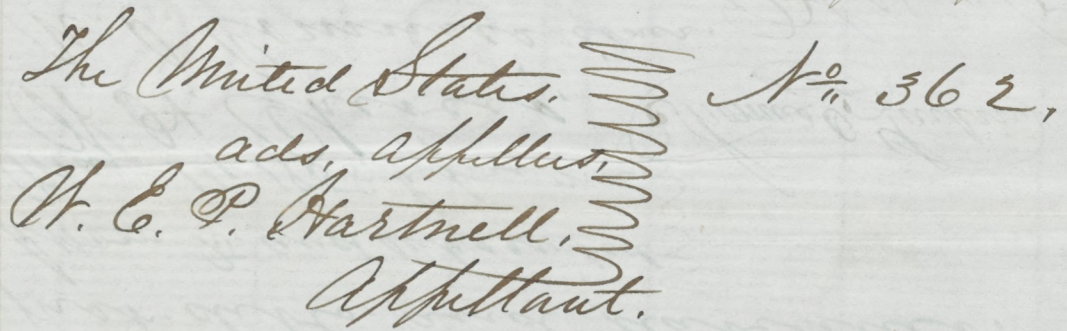 The United States. No. 362,
ads, appellees,
W. E. P. Hartnell,
Appellant.